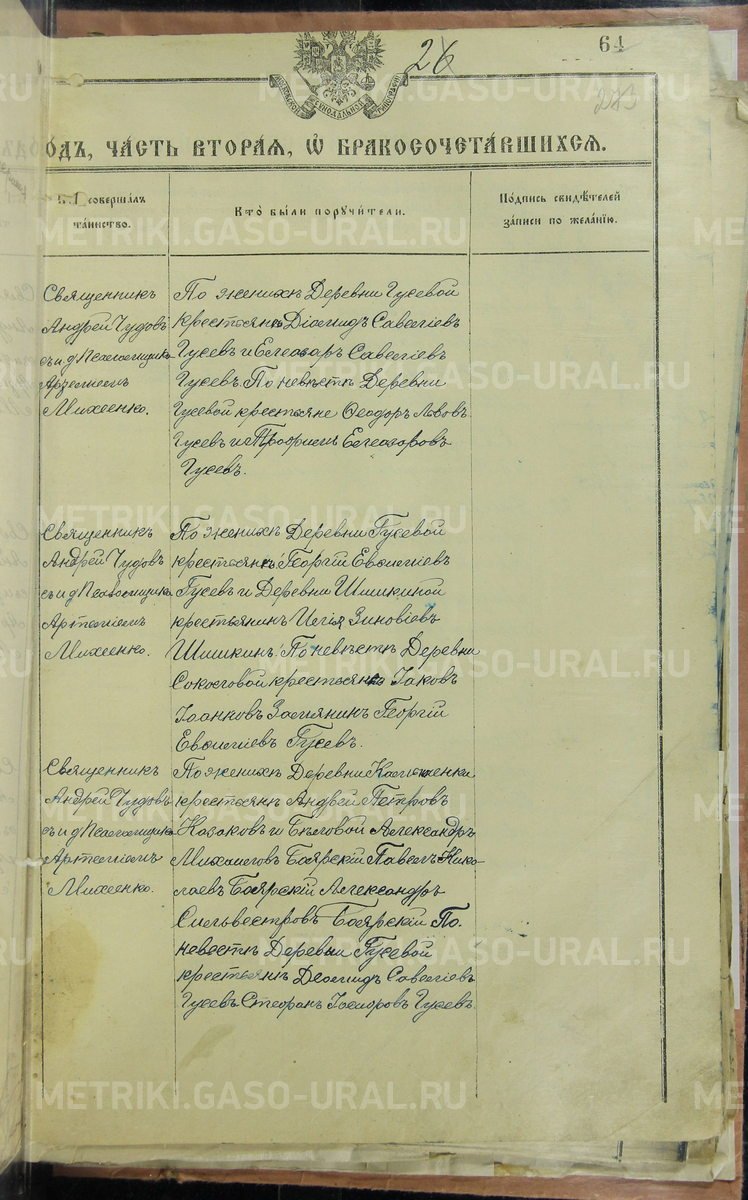 26
64
283
МОСКОВСКОЙ СѴНОДАЛЬНОЙ ТИПОГРАФІИ
ОДЪ, ЧАСТЬ ВТОРАЯ, Ѽ БРАКОСОЧЕТАВШИХСЯ.
совершалъ
таинство.
Кто были поручители.
Подпись свидѣтелей
записи по желанію.
Священникъ
Андрей Чудовъ
съ и д Псаломщика
Артемiемъ
Михеенко.
По женихѣ Деревни Гусевой
крестьяне Діомидъ Савелiевъ
Гусевъ и Елеозаръ Савелiевъ
Гусевъ По невѣстѣ Деревни
Гусевой крестьяне Ѳеодоръ Львовъ
Гусевъ и Трофимъ Елеозаровъ
Гусевъ.
Священникъ
Андрей Чудовъ
съ и д Псаломщика
Артемiемъ
Михеенко.
По женихѣ Деревни Гусевой
крестьянинъ Георгій
Гусевъ и Деревни Шишкиной
крестьянинъ Илія Зиновіевъ
Шишкинъ. По невѣстѣ Деревни
Соколовой крестьяне Іаковъ
Іоанновъ Замянин Георгій
Гусевъ.
Священникъ
Андрей Чудовъ
съ и д Псаломщика
Артемiемъ
Михеенко.
По женихѣ Деревни Каменки
крестьяне Андрей Петровъ
Казаковъ и Бѣловой Александръ
Михаиловъ Боярскій Павелъ Нико-
лаевъ Боярскій Александръ
Сильвестровъ Боярскій По
невестѣ Деревни Гусевой
крестьяне Деомидъ Савелiевъ
Гусевъ Стефанъ Гусевъ.
METRIKI.GASO-URAL.RU